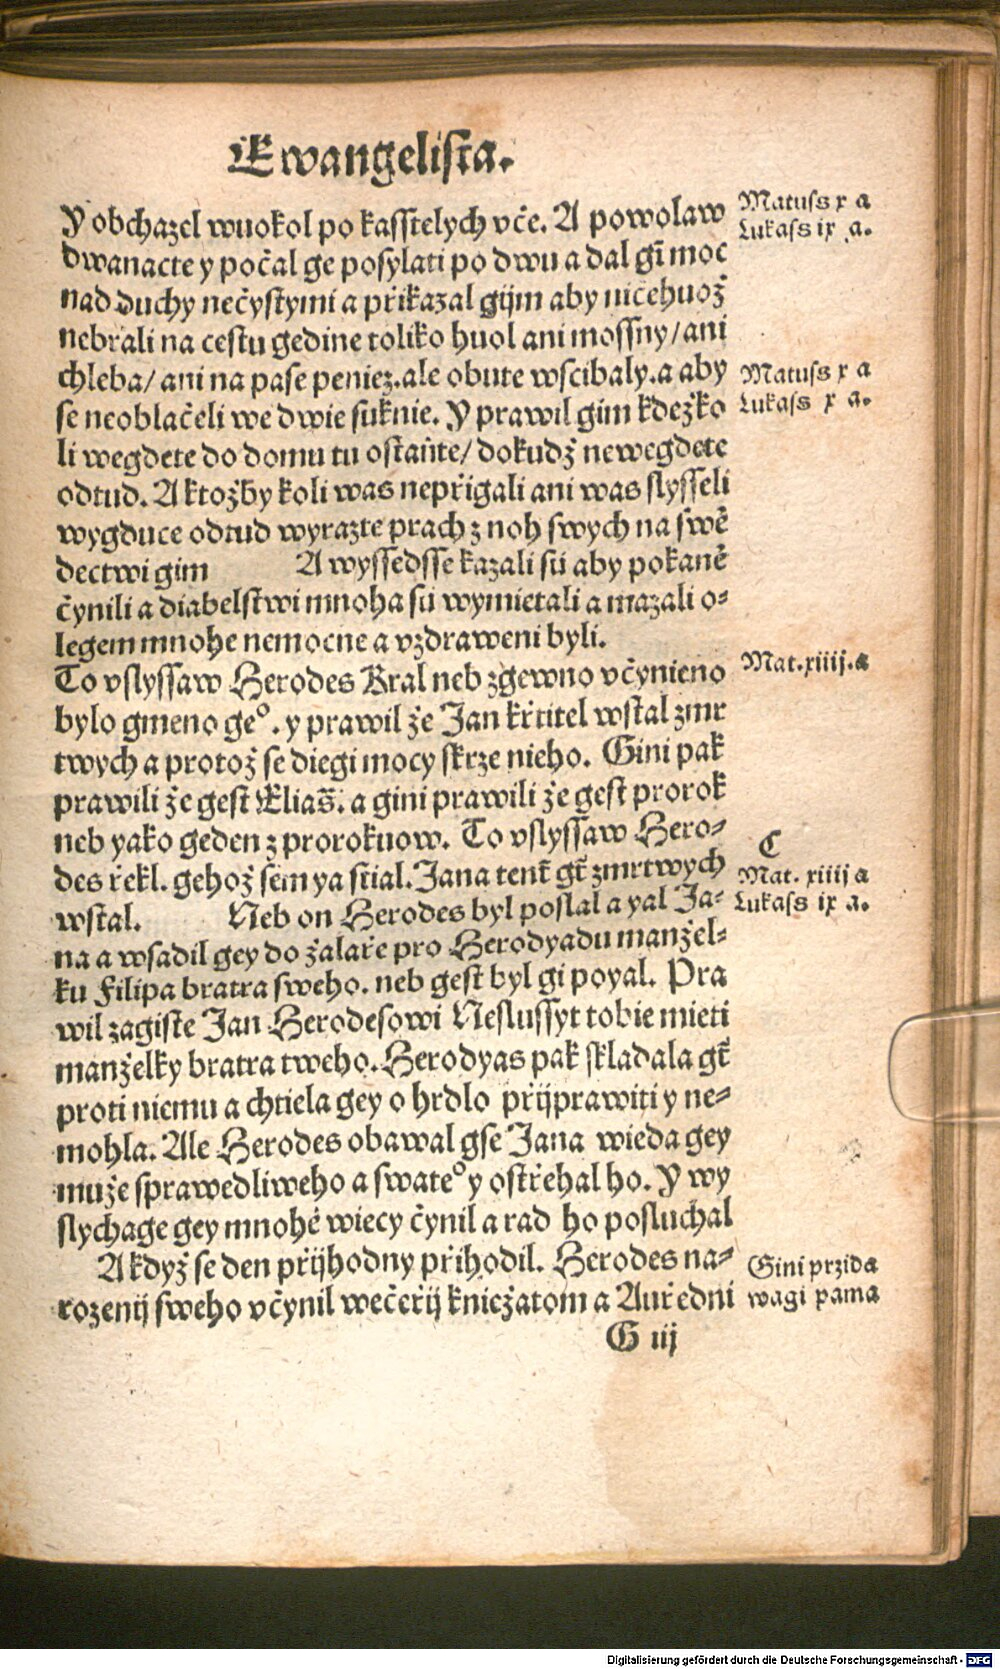 Ewangelista.
Y obchazel wuokol po kasstelych vče. A powolaw
dwanacte y počal ge posylati po dwu a dal gĩ moc
nad duchy nečystymi a přikazal gijm aby ničehuož
nebrali na cestu gedine toliko huol ani mossny/ ani
chleba/ ani na pase peniez. ale obute wscibaly. a aby
se neoblačeli we dwie suknie. Y prawil gim kdežko
li wegdete do domu tu ostaňte/ dokudž newegdete
odtud. A ktožby koli was nepřigali ani was slysseli
wygduce odtud wyrazte prach z noh swych na swě
dectwi gim A wyssedsse kazali sú aby pokanĕ
čynili a diabelstwi mnoha sú wymietali a mazali o-
legem mnohe nemocne a vzdraweni byli.
To vslyssaw Herodes Kral neb zgewno včynieno
bylo gmeno geº. y prawil že Jan křtitel wstal zmr
twych a protož se diegi mocy skrze nieho. Gini pak
prawili že gest Eliaš. a gini prawili že gest prorok
neb yako geden z prorokuow. To vslyssaw Hero-
des řekl. gehož sem ya stial. Jana tent̃ gt̃ zmrtwych
wstal. Neb on Herodes byl poslal a yal Ja-
na a wsadil gey do žalaře pro Herodyadu manžel-
ku Filipa bratra sweho. neb gest byl gi poyal. Pra
wil zagiste Jan Herodesowi Neslussyt tobie mieti
manželky bratra tweho. Herodyas pak skladala gt̃
proti niemu a chtiela gey o hrdlo přijprawiti y ne-
mohla. Ale Herodes obawal gse Jana wieda gey
muže sprawedliweho a swateº y ostřehal ho. Y wy
slychage gey mnohé wiecy čynil a rad ho posluchal
A když se den přijhodny přihodil. Herodes na-
rozenij sweho včynil wečeřij kniežatom a Auředni
G iij
Matuss x a
Lukass ix a.
Matuss x a
Lukass x a.
Mat. xiiij. a
C
Mat. xiiij a
Lukass ix a.
Gini przida
wagi xama
Digitalisierung gefördert durch die Deutsche Forschungsgemeinschaft - DFG